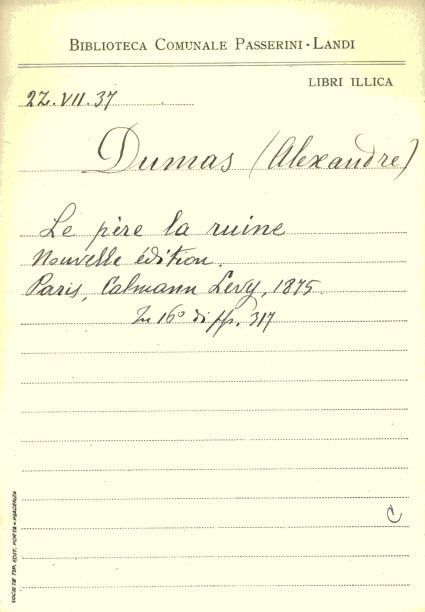 BIBLIOTECA COMUNALE PASSERINI - LANDI
LIBRI ILLICA
22.VII.37
Dumas (Alexandre)
Le père la ruine
Nouvelle édition.
Paris, Calmann Levy, 1875
In 16° di pp. 317
C
SOCIETÀ TIP. EDIT. PORTA - PIACENZA